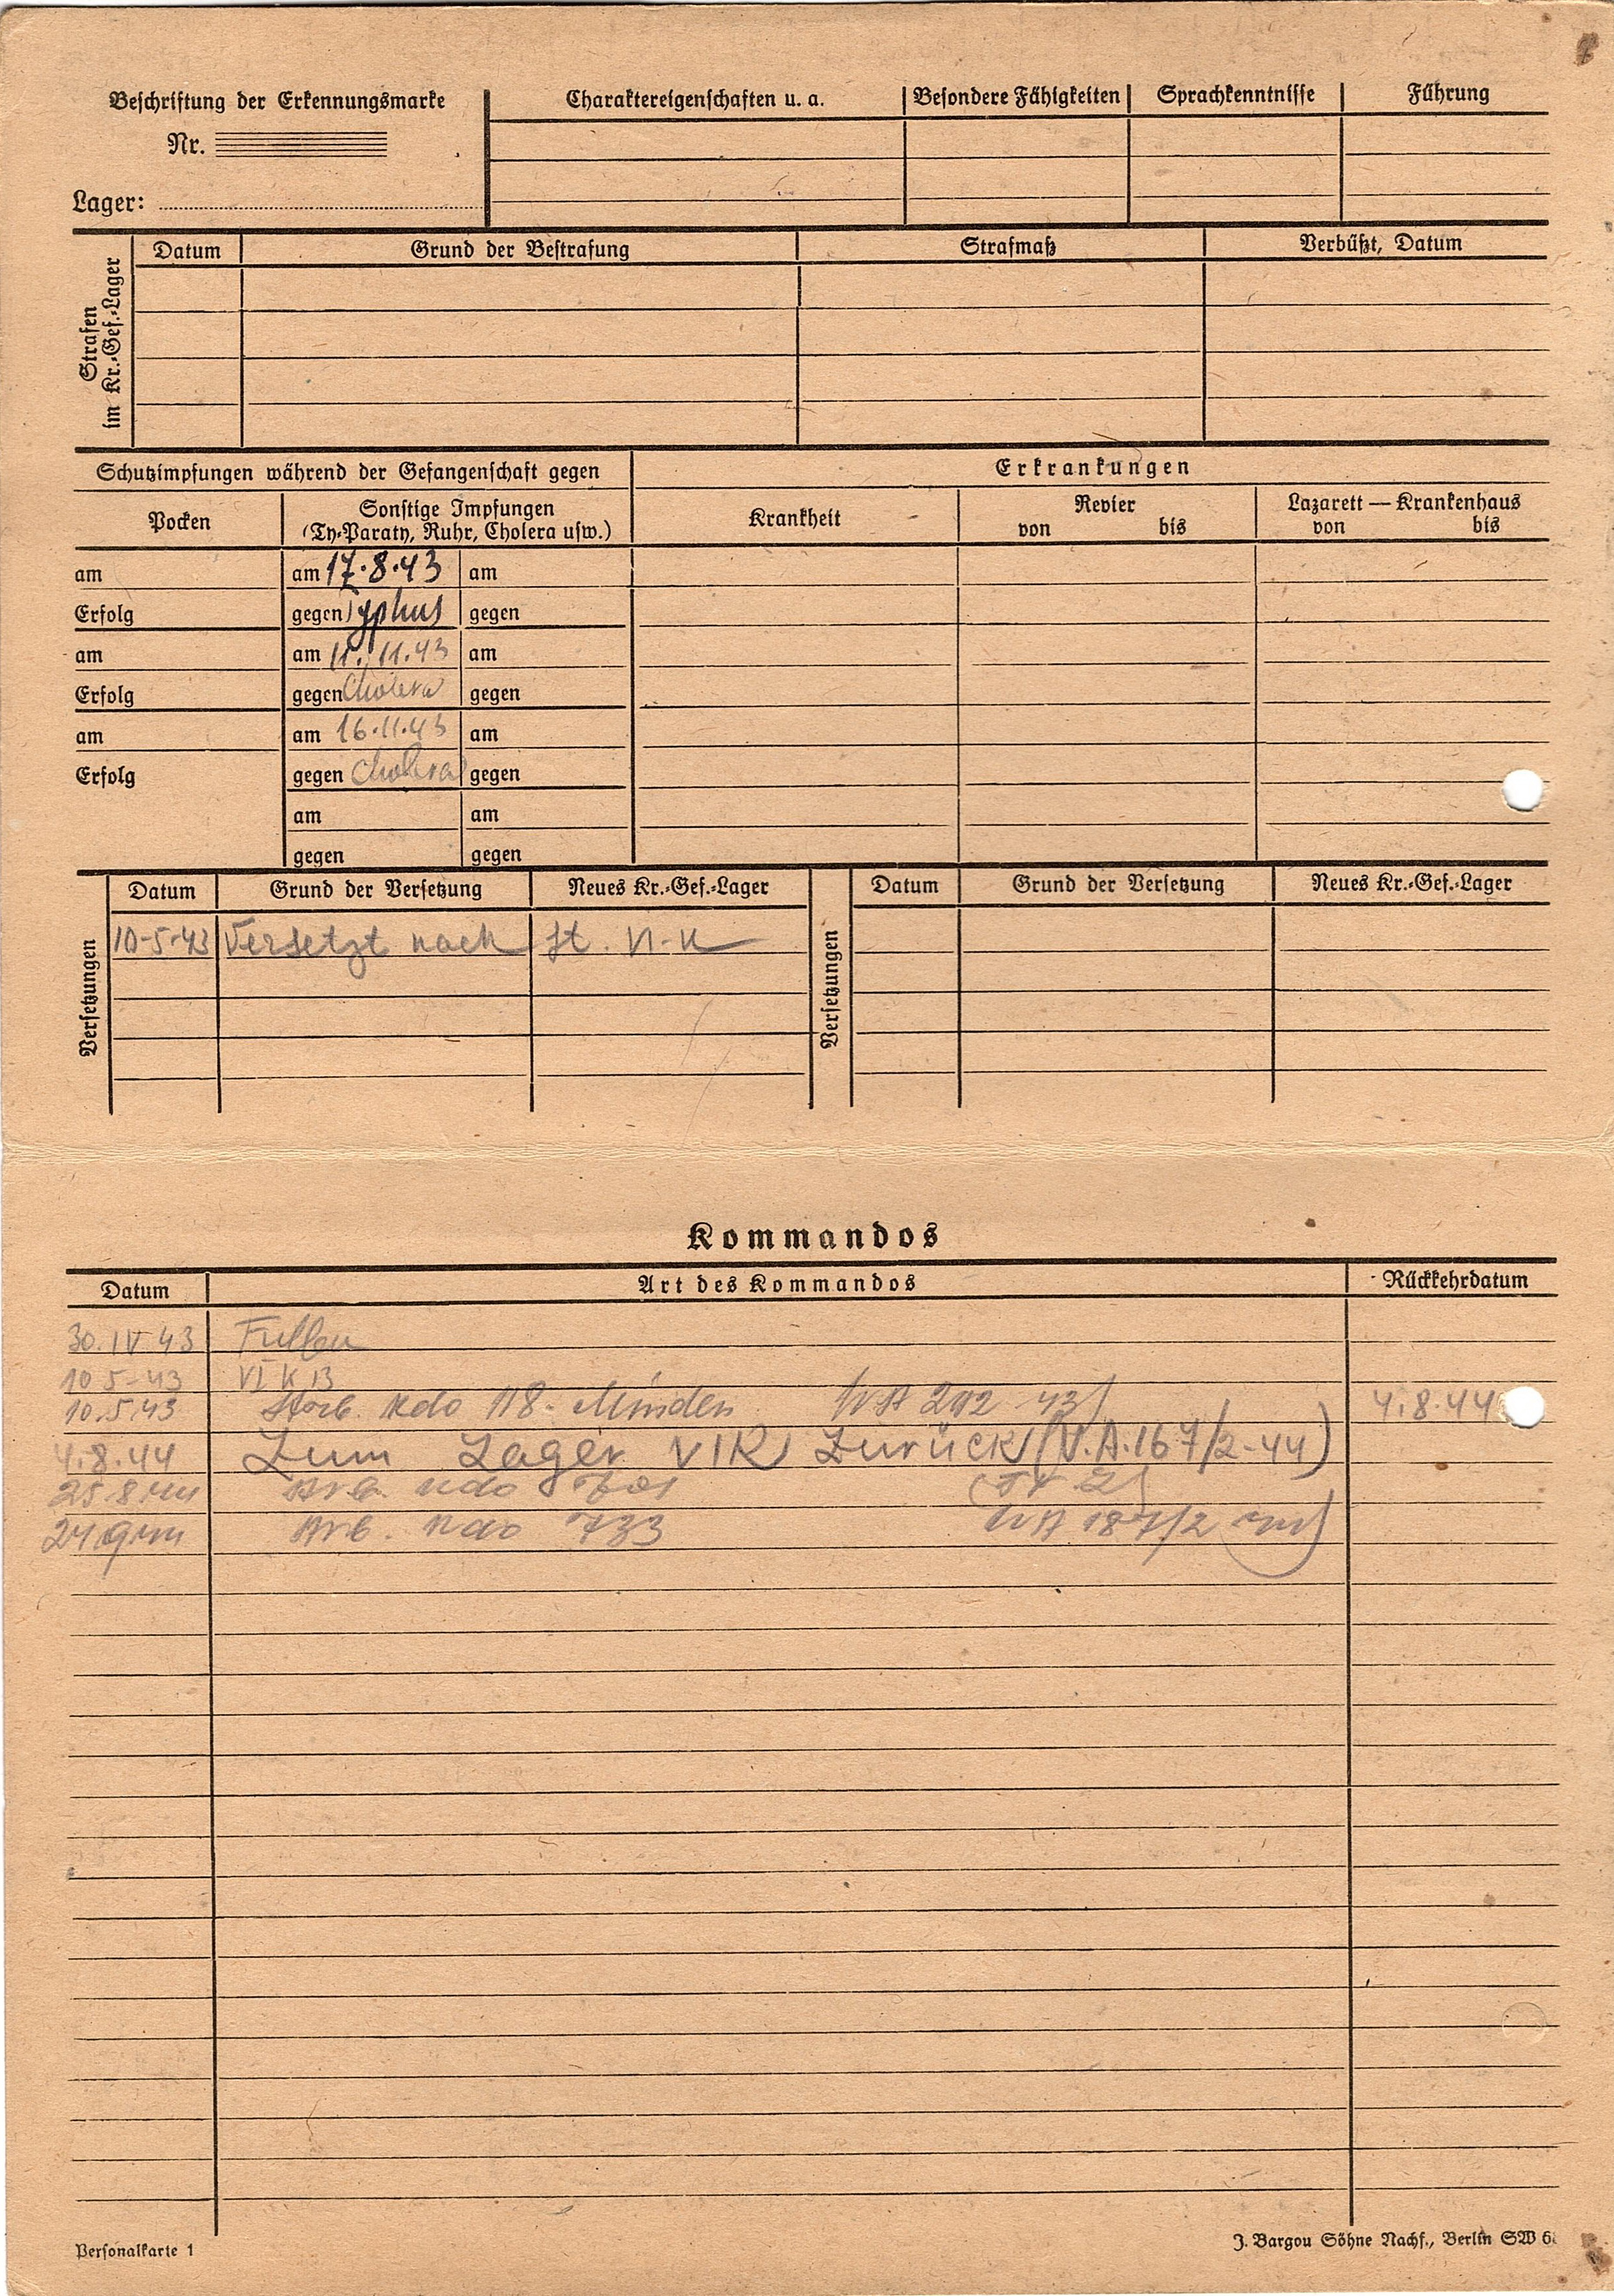 Beschriftung der Erkennungsmarke
Nr.
Lager:
Charaktereigenschaften u. a.
Besondere Fähigkeiten
Sprachkenntnisse
Führung
Strafen
im Kr.-Gef.-Lager
Datum
Grund der Bestrafung
Strafmaß
Verbüßt, Datum
Schutzimpfungen während der Gefangenschaft gegen
Erkrankungen
Pocken
Sonstige Impfungen
(Ty-Paraty, Ruhr, Cholera usw.)
Krankheit
Revier
von bis
Lazarett — Krankenhaus
von bis
am am 17.8.43 am
Erfolg gegen Typhus gegen
am am 11.11.43 am
Erfolg gegen Cholera gegen
am am 16.11.43 am
Erfolg gegen Cholera gegen
am am
gegen gegen
Versetzungen
Datum Grund der Versetzung Neues Kr.-Gef.-Lager
10-5-43 Versetzt nach St. VI-K
Versetzungen
Datum Grund der Versetzung Neues Kr.-Gef.-Lager
Kommandos
Datum Art des Kommandos Rückkehrdatum
30.IV 43 Fullen
10 5-43 VI K 13
10.5.43 Arb. Kdo 118. Minden 292 43) 4.8.44
4.8.44 Zum Lager VIK Zurück (V.A.167/2-44)
25 8 44 Arb. Kdo
24 9 44 Arb. Kdo 733 187/2 44)
Personalkarte 1
J. Bargou Söhne Nachf., Berlin SW 6